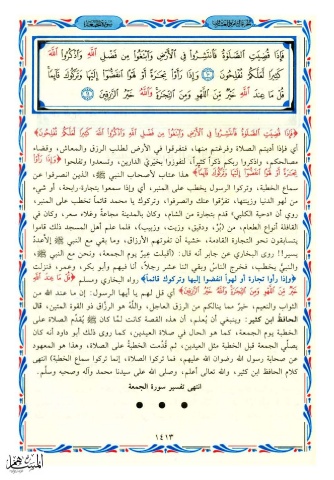 فَإِذَا قُضِيَتِ ٱلصَّلَوٰةُ فَٱنتَشِرُوا۟ فِى ٱلْأَرْضِ وَٱبْتَغُوا۟ مِن فَضْلِ ٱللَّهِ وَٱذْكُرُوا۟ ٱللَّهَ
كَثِيرًا لَّعَلَّكُمْ تُفْلِحُونَ ١٠ وَإِذَا رَأَوْا۟ تِجَٰرَةً أَوْ لَهْوًا ٱنفَضُّوٓا۟ إِلَيْهَا وَتَرَكُوكَ قَآئِمًا
قُلْ مَا عِندَ ٱللَّهِ خَيْرٌ مِّنَ ٱللَّهْوِ وَمِنَ ٱلتِّجَٰرَةِ وَٱللَّهُ خَيْرُ ٱلرَّٰزِقِينَ ١١
﴿فَإِذَا قُضِيَتِ ٱلصَّلَوٰةُ فَٱنتَشِرُوا۟ فِى ٱلْأَرْضِ وَٱبْتَغُوا۟ مِن فَضْلِ ٱللَّهِ وَٱذْكُرُوا۟ ٱللَّهَ كَثِيرًا لَّعَلَّكُمْ تُفْلِحُونَ﴾
أي فإذا أديتم الصلاة وفرغتم منها، فتفرقوا في الأرض لطلب الرزق والمعاش، وقضاء
مصالحكم، واذكروا ربكم ذكراً كثيراً، لتفوزوا بخيري الدارين، وتسعدوا وتفلحوا ﴿وَإِذَا رَأَوْا۟
تِجَٰرَةً أَوْ لَهْوًا ٱنفَضُّوٓا۟ إِلَيْهَا وَتَرَكُوكَ قَآئِمًا﴾ هذا عتاب لأصحاب النبي ﷺ، الذين انصرفوا عن
سماع الخطبة، وتركوا الرسول يخطب على المنبر، أي وإذا سمعوا بتجارة رابحة، أو شيء
من لهو الدنيا وزينتها، تفرّقوا عنك وانصرفوا، وتركوك يا محمد قائماً تخطب على المنبر،
روي أن «دحية الكلبي» قدم بتجارة من الشام، وكان بالمدينة مجاعةٌ وغلاء سعر، وكان في
القافلة أنواع الطعام، من (بُرّ، ودقيق، وزيت، وزبيب)، فلما علم أهل المسجد ذلك قاموا
يتسابقون نحو التجارة القادمة، خشية أن تفوتهم الأرزاق، وما بقي مع النبي ﷺ إلا عددٌ
يسير!! روى البخاري عن جابر أنه قال: (أقبلت عِيرٌ يوم الجمعة، ونحن مع النبي ﷺ،
والنبي يخطب، فخرج الناسُ وبقي اثنا عشر رجلاً، أنا فيهم وأبو بكر، وعمر، فنزلت
﴿وإذا رأوا تجارة أو لهواً انفضوا إليها وتركوك قائماً﴾ رواه البخاري ومسلم ﴿قُلْ مَا عِندَ ٱللَّهِ
خَيْرٌ مِّنَ ٱللَّهْوِ وَمِنَ ٱلتِّجَٰرَةِ وَٱللَّهُ خَيْرُ ٱلرَّٰزِقِينَ﴾ أي قل لهم يا أيها الرسول: إن ما عند الله من
الثواب والنعيم، خيرٌ مما ينالكم من الرزق العاجل، والله هو الرزّاق ذو القوة المتين، قال
الحافظ ابن كثير: وينبغي أن يُعلم، أن هذه القصة كانت لمّا كان ﷺ يُقدّم الصلاة على
الخطبة يوم الجمعة، كما هو الحال في صلاة العيدين، كما روى ذلك أبو داود أنه كان
يصلّي الجمعة قبل الخطبة مثل العيدين، ثم قُدّمت الخطبةُ على الصلاة، وهذا هو المعهود
من صحابة رسول الله رضوان الله عليهم، فما تركوا الصلاة، إنما تركوا سماع الخطبة) انتهى
كلام الحافظ ابن كثير، والله تعالى أعلم، وصلى الله على سيدنا محمد وآله وصحبه وسلّم.
انتهى تفسير سورة الجمعة
١٤١٣